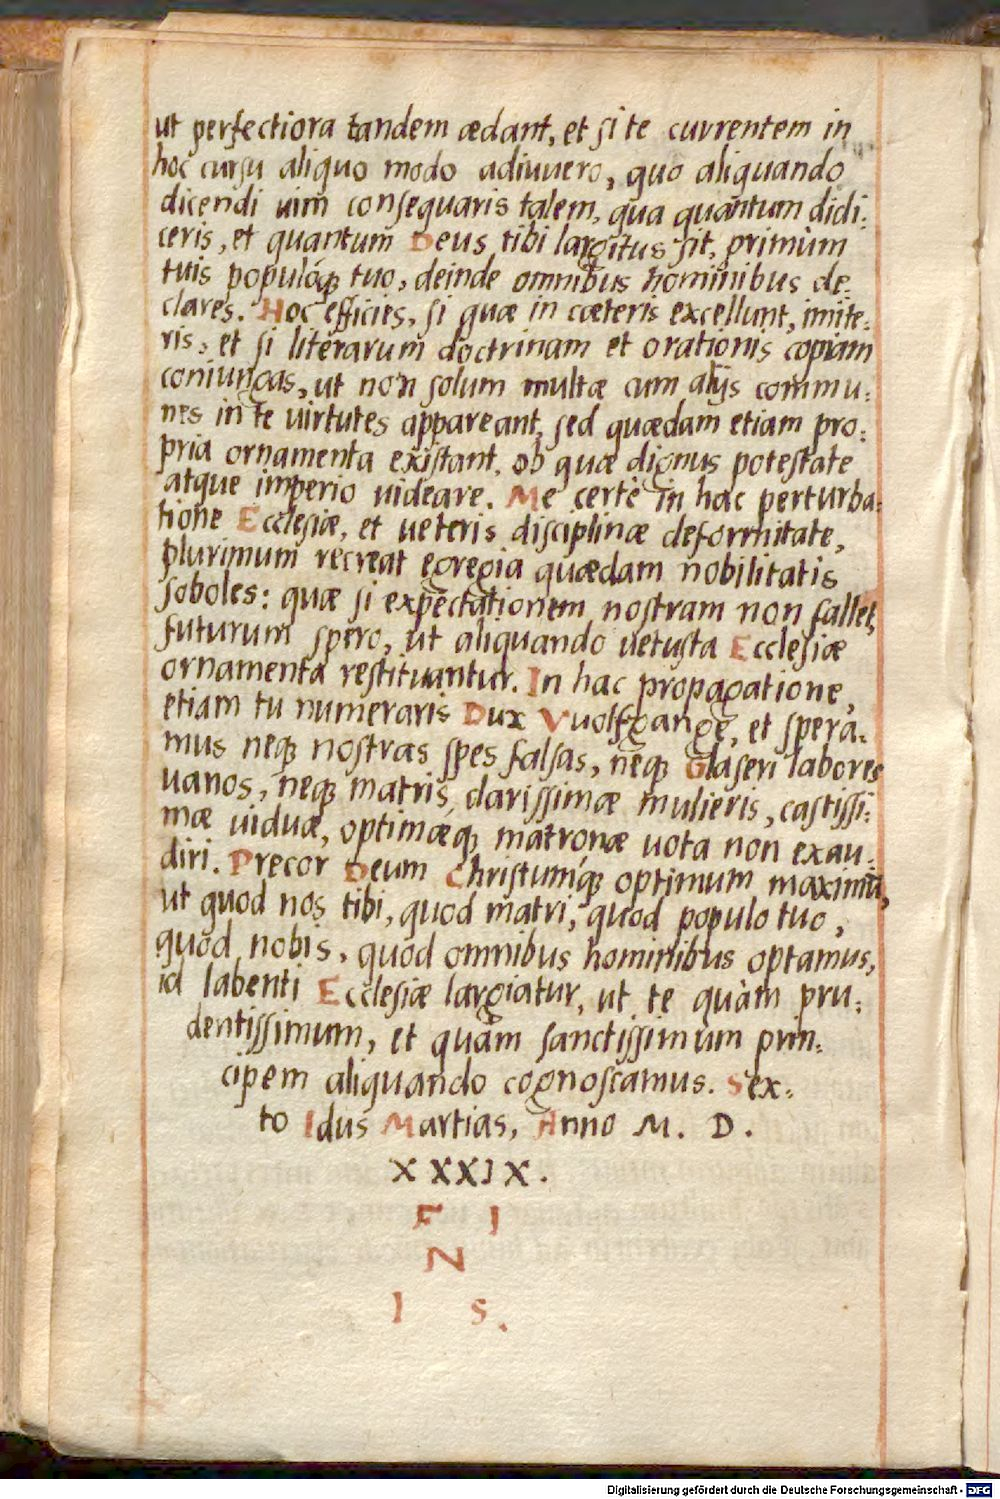 ut perfectiora tandem ædant, et si te currentem in
hoc cursu aliquo modo adiuuero, quo aliquando
dicendi uim consequaris talem, qua quantum didi:
ceris, et quantum Deus tibi largitus sit, primùm
tuis populóq; tuo, deinde omnibus hominibus de:
clares. Hoc efficies, si quæ in cæteris excellunt, imite:
ris, et si literarum doctrinam et orationis copiam
coniungas, ut non solum multæ cum alijs commu:
nes in te uirtutes appareant, sed quædam etiam pro:
pria ornamenta existant, ob quæ dignus potestate
atque imperio uideare. Me certè in hac perturba:
tione Ecclesiæ, et ueteris disciplinæ deformitate,
plurimum recreat egregia quædam nobilitatis
soboles: quæ si expectationem nostram non fallet,
futurum spero, ut aliquando uetusta Ecclesiæ
ornamenta restituantur. In hac propagatione,
etiam tu numeraris Dux Vuolfgange, et spera:
mus neq; nostras spes falsas, neq; Glaseri labores
uanos, neq; matris, clarissimæ mulieris, castissi:
mæ uiduæ, optimæq; matronæ uota non exau:
diri. Precor Deum Christumq́; optimum maximū,
ut quod nos tibi, quod matri, quod populo tuo,
quod nobis, quod omnibus hominibus optamus,
id labenti Ecclesiæ largiatur, ut te quàm pru:
dentissimum, et quàm sanctissimum prin:
cipem aliquando cognoscamus. Sex:
to Idus Martias, Anno M. D.
XXXIX.
F I
N
I S.
Digitalisierung gefördert durch die Deutsche Forschungsgemeinschaft - DFG